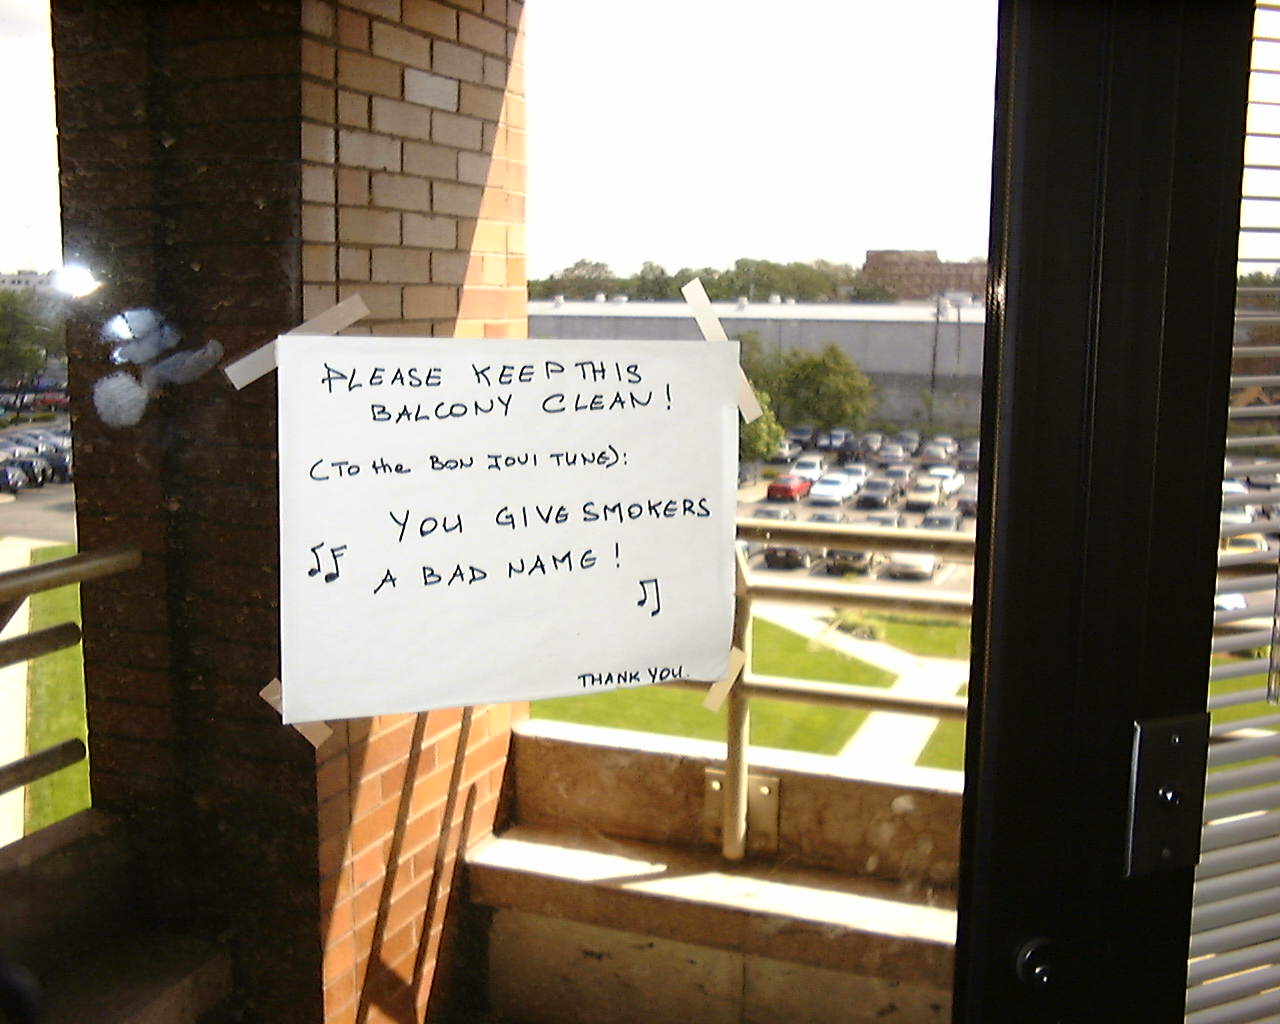 PLEASE KEEP THIS
BALCONY CLEAN!
(TO the BON JOVI TUNE):
YOU GIVE SMOKERS
A BAD NAME!
THANK YOU.